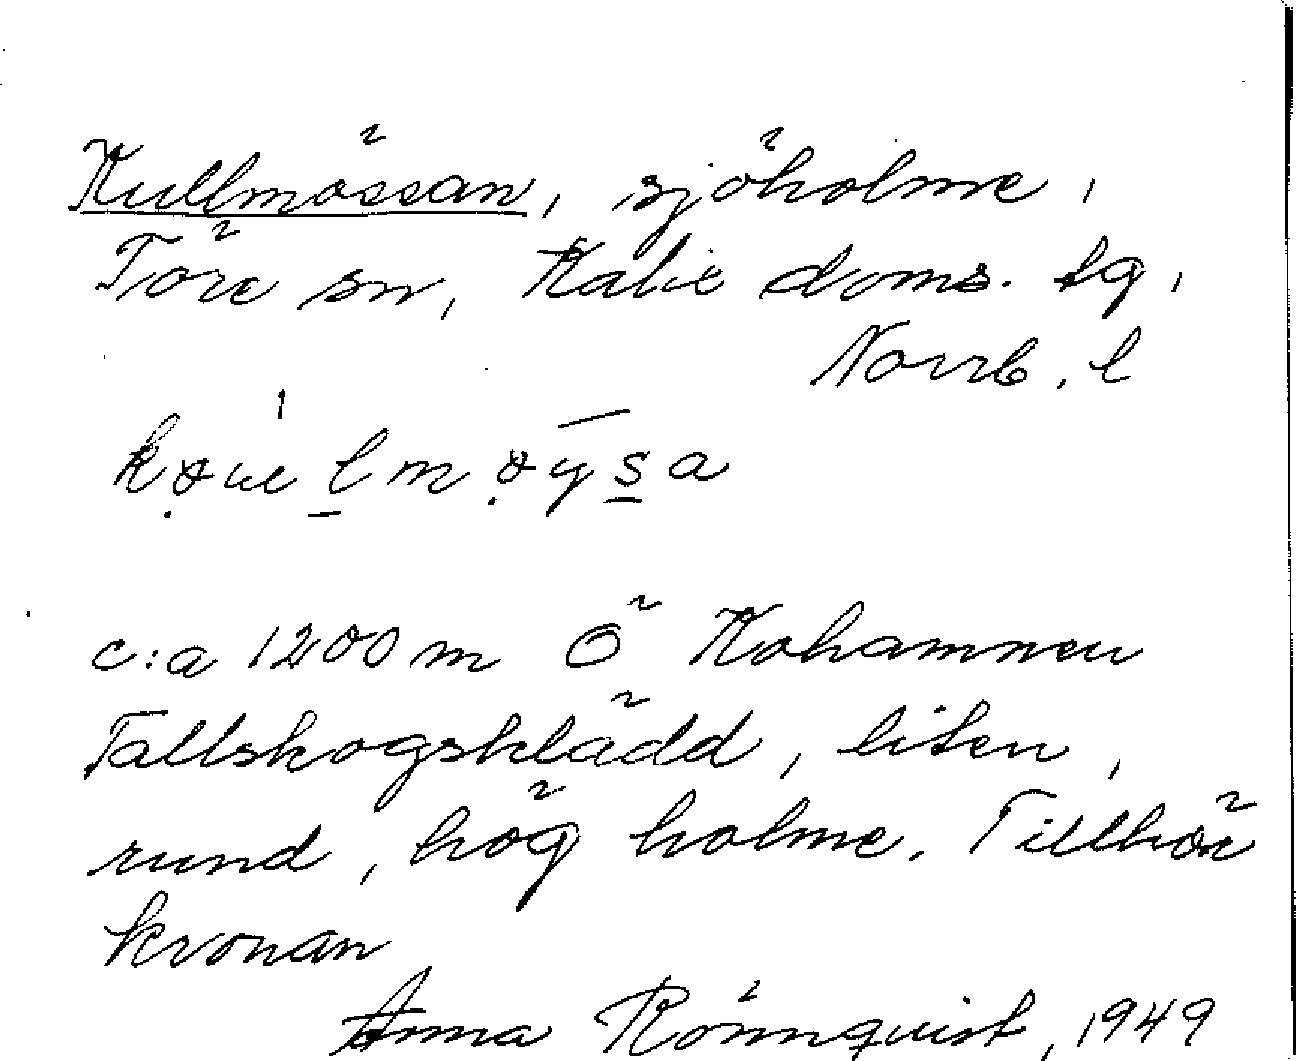 Kullmössan, sjöholme,
Töre sn, Kalix doms. tg,
Norrb. l
c:a 1200 m Ö Kohamnen
Tallskogsklädd, liten,
rund, hög holme. Tillhör
kronan
Anna Rönnquist, 1949